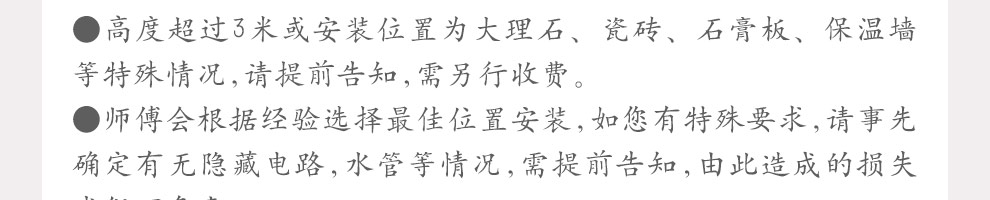 ●高度超过3米或安装位置为大理石、瓷砖、石膏板、保温墙
等特殊情况,请提前告知,需另行收费。
●师傅会根据经验选择最佳位置安装,如您有特殊要求,请事先
确定有无隐藏电路,水管等情况,需提前告知,由此造成的损失